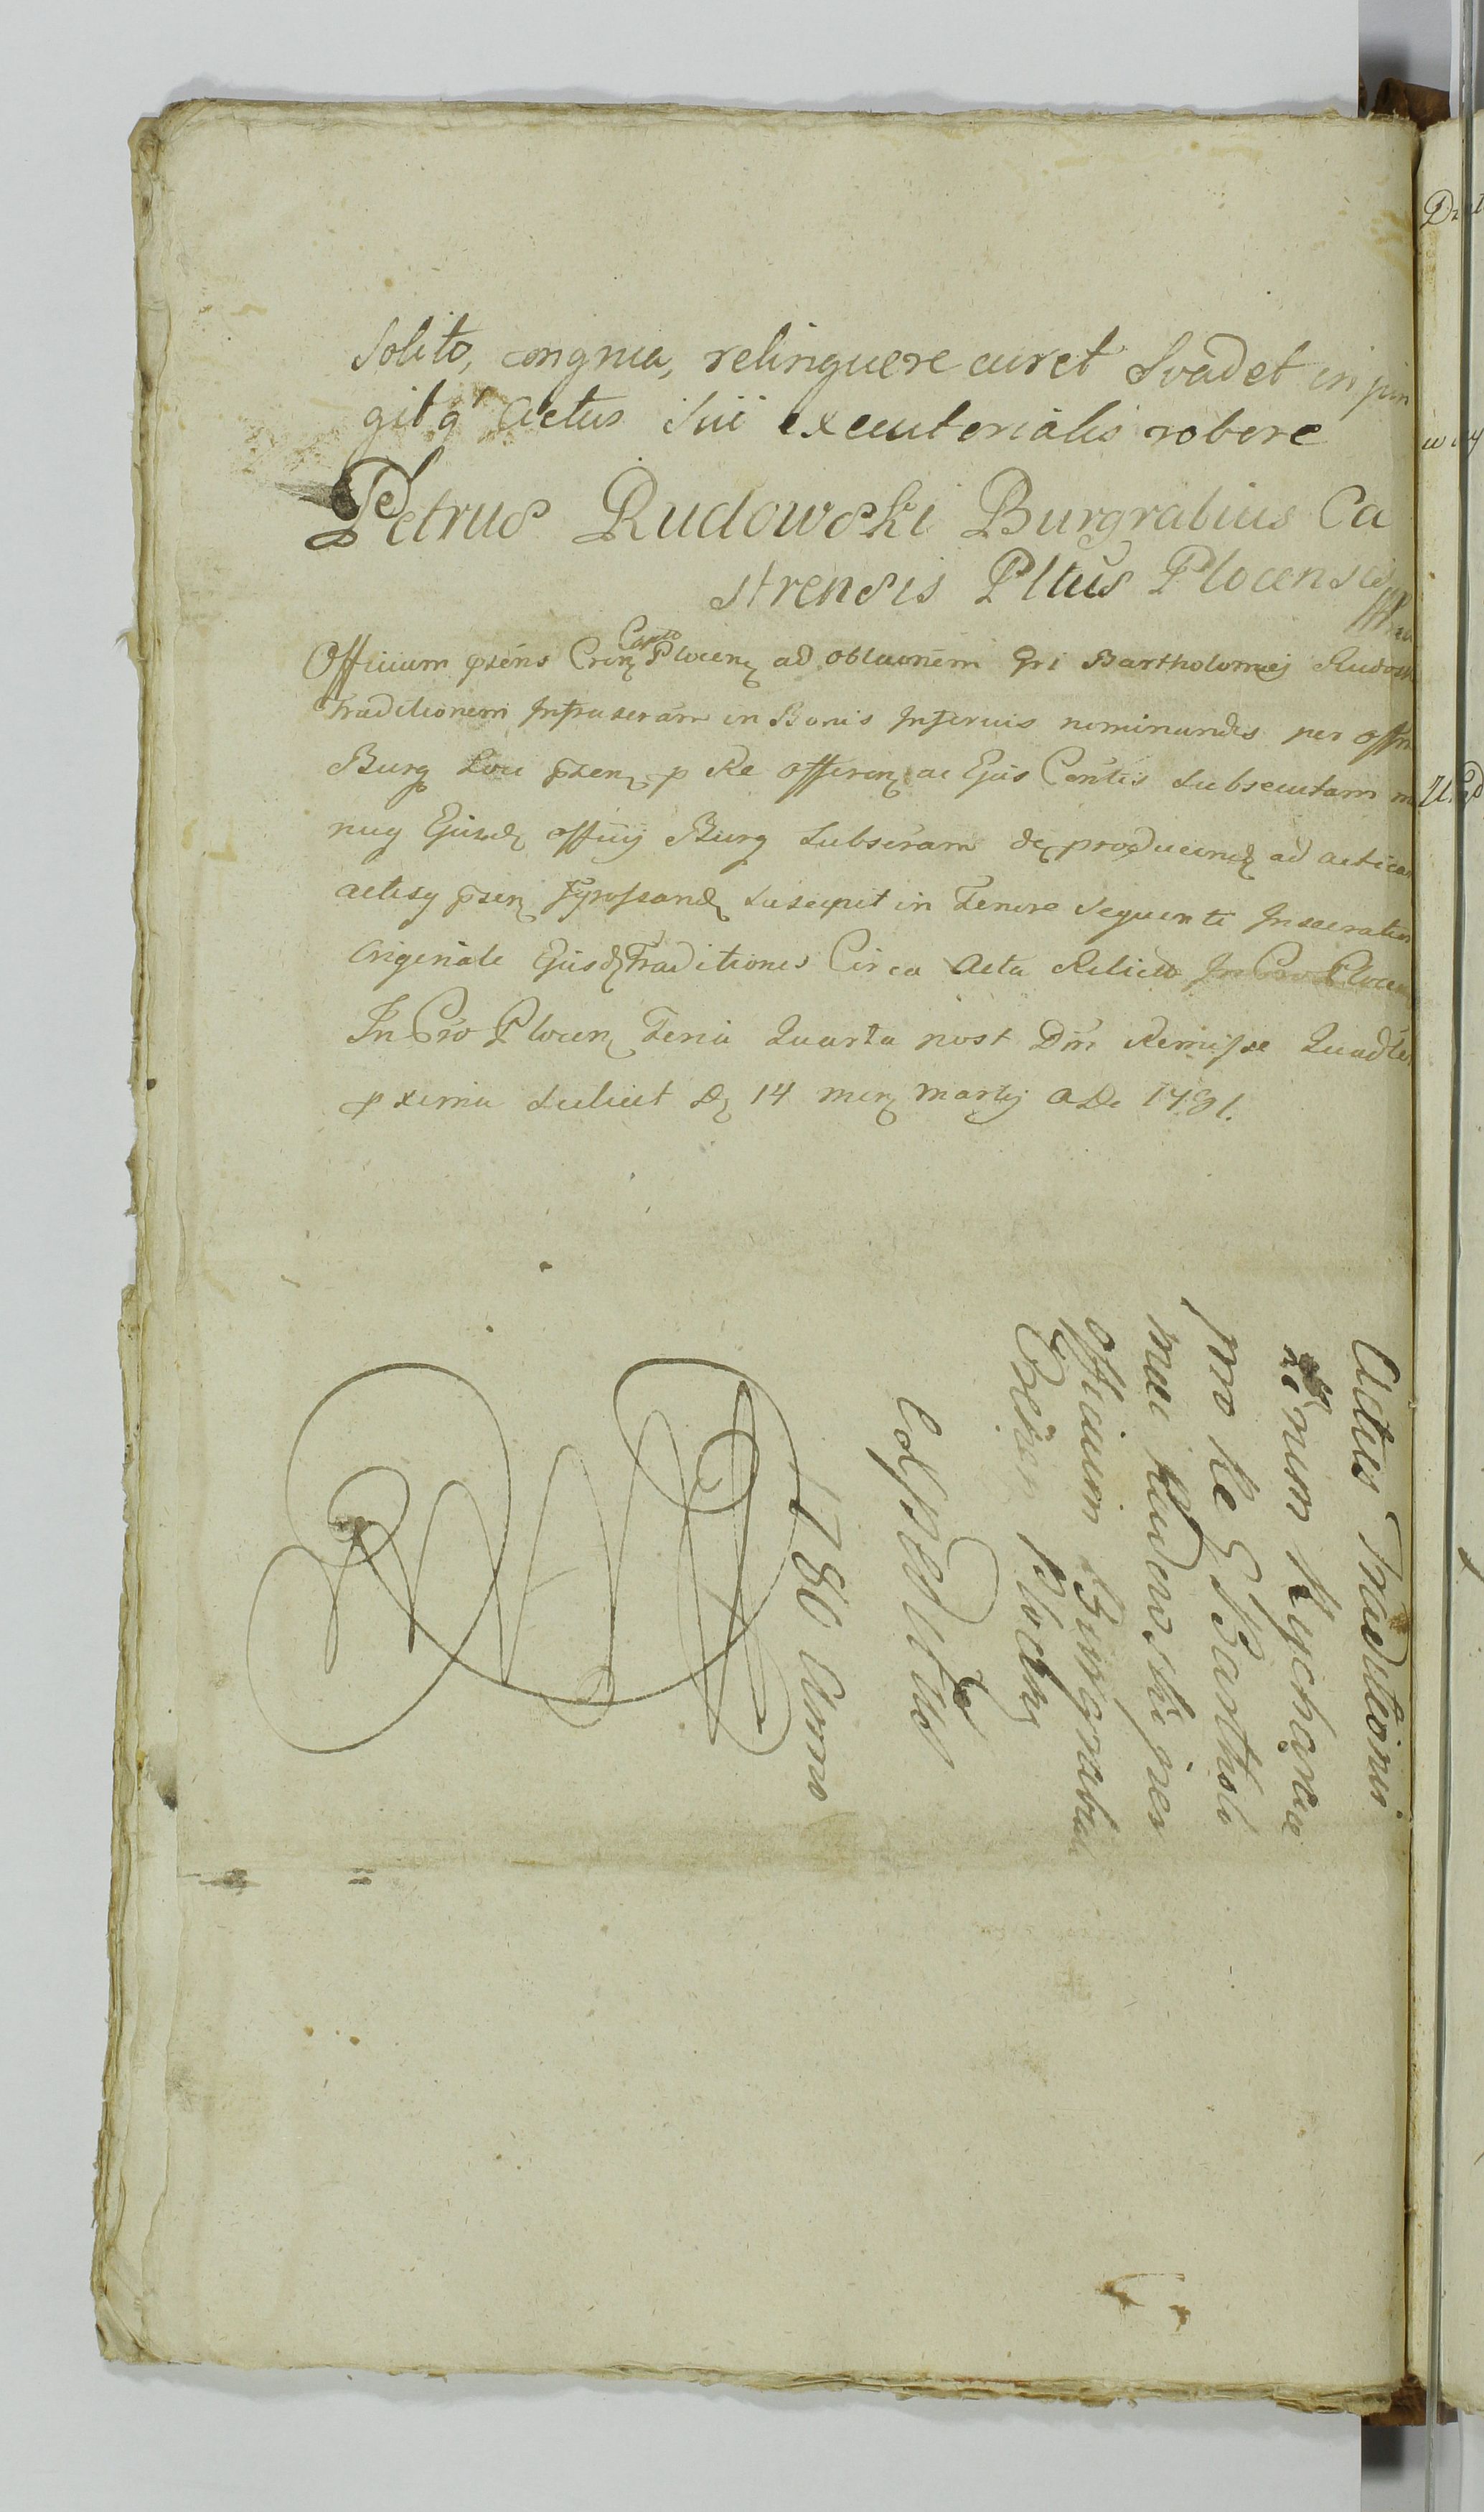 Solito, congrua, relinquere curet Svadet in pin
gitq' Actus Sui executorialis robore
Petrus Rudowski Burgrabius Ca
strensis Pltus Plocensis
Officium pzens Cron Capto Plocen ad oblaonem Gri Bartholomej Rudows
Traditionem Infrascram in Bonis Inferius nominandis per offm
Burg Loci pzen p Re offeren ac Ejus Contis Subsecutam m
nuq Ejusd officij Burg Subscram de producend ad actican
actisq pzen Ingrossand Suscepit in Tenore Sequenti Insceratur
Originale Ejusd Traditionis Circa Acta Relicto
In Cro Plocen Feria Quarta post Dm Remissre Quadle
pxima Scilicet D 14 men Martij A D 1781.
Actus Traditionis
num Rychance
pro Re G Bartholo
mei Rudowski per
Officium Burgrabial
Plocen
1780 Anno